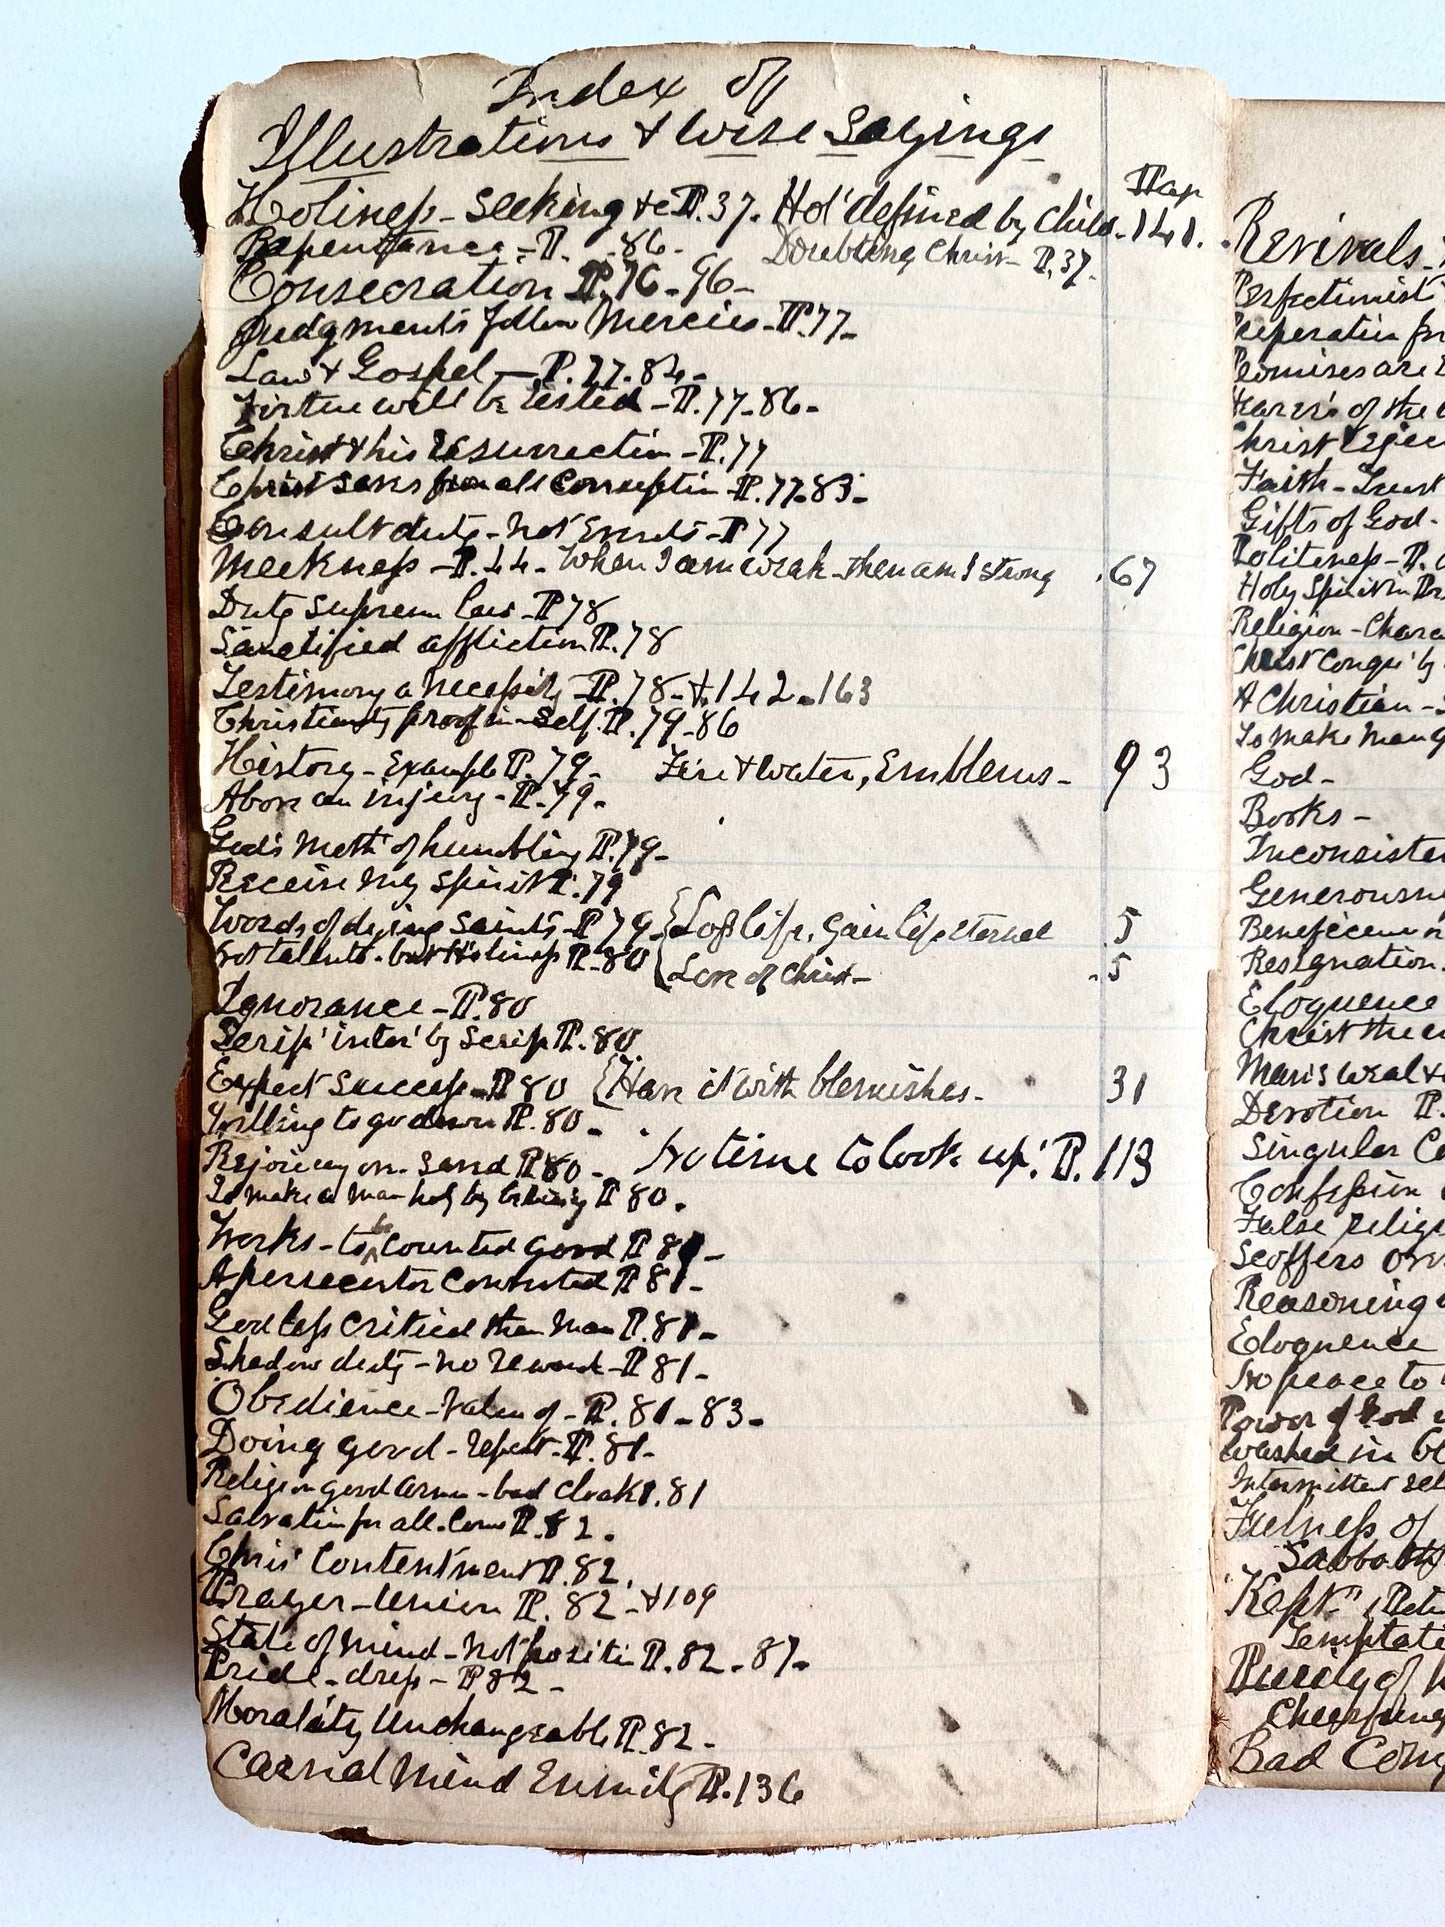 Index of
Illustrations & Wise Sayings
Pap
Holiness - Seeking &c P. 37. Hol' defined by child. 141.
Repentance - P. 86. Doubting Christ - P. 37.
Consecration P. 76 - 96 -
Judgments follow Mercies - P. 77 -
Law & Gospel - P. 77. 84 -
Virtue will be tested - P. 77 - 86 -
Christ & his resurrection - P. 77
Christ saves from all Corruption - P. 77. 83 -
Consult duty - not Events - P 77
Meekness - P. 44 - When I am weak - then am I strong . 67
Duty supreme law - P 78
Sanctified affliction P. 78
Testimony a necessity - P. 78 - & 142 - 163
Christianity proof in - self. P. 79 - 86
History - Example P. 79 - Fire & water, Emblems - 93
Above an injury - P. 79 -
God's Meth' of humbling P. 79 -
Receive my spirit P. 79
Words of dying saints - P 79 - { Loss life, gain life eternal . 5
Not talents - but Holiness P. 80 { Love of Christ - . 5
Ignorance - P. 80
Scrip' inter' by Scrip P. 80
Expect success - P 80 { Have it with blemishes - 31
Willing to go down P. 80 -
Rejoicing on - Sand P 80 - No time to look up! P. 113
To make a man holy by P 80 .
Works - to be counted good P 81 -
A persecutor Converted P 81 -
God less critical than Man P. 81 -
Shadow duty - no reward - P 81 -
Obedience - value of - P. 81 - 83 -
Doing good - repeat - P. 81 -
Religion good - bad cloak P. 81
Salvation for all. Come P. 82 .
Chris' Contentment P. 82 .
Prayer - Union P. 82 - & 109
State of mind - not positi P. 82 - 87 -
Pride - dress - P 82 -
Morality Unchangeable P. 82 -
Carnal Mind Enmity P. 136
Revivals -
Perfectionist
Preperation for
Promises are
of the
Christ
Faith - Trust
Gifts of God -
Politeness - P.
Holy Spirit in
Religion - Chara
Christ Conqu' by
A Christian -
To make Man
God -
Books -
Inconsisten
Generousn
Beneficence
Resignation -
Eloquence
Christ the
Man's weal &
Devotion P.
Singular C
Confession
False religi
Scoffers
Reasoning
Eloquence
No peace to
Power of God
washed in bl
Intermitted
Fulness of
Sabbath
Kept
Temptati
Purity of

Bad Com